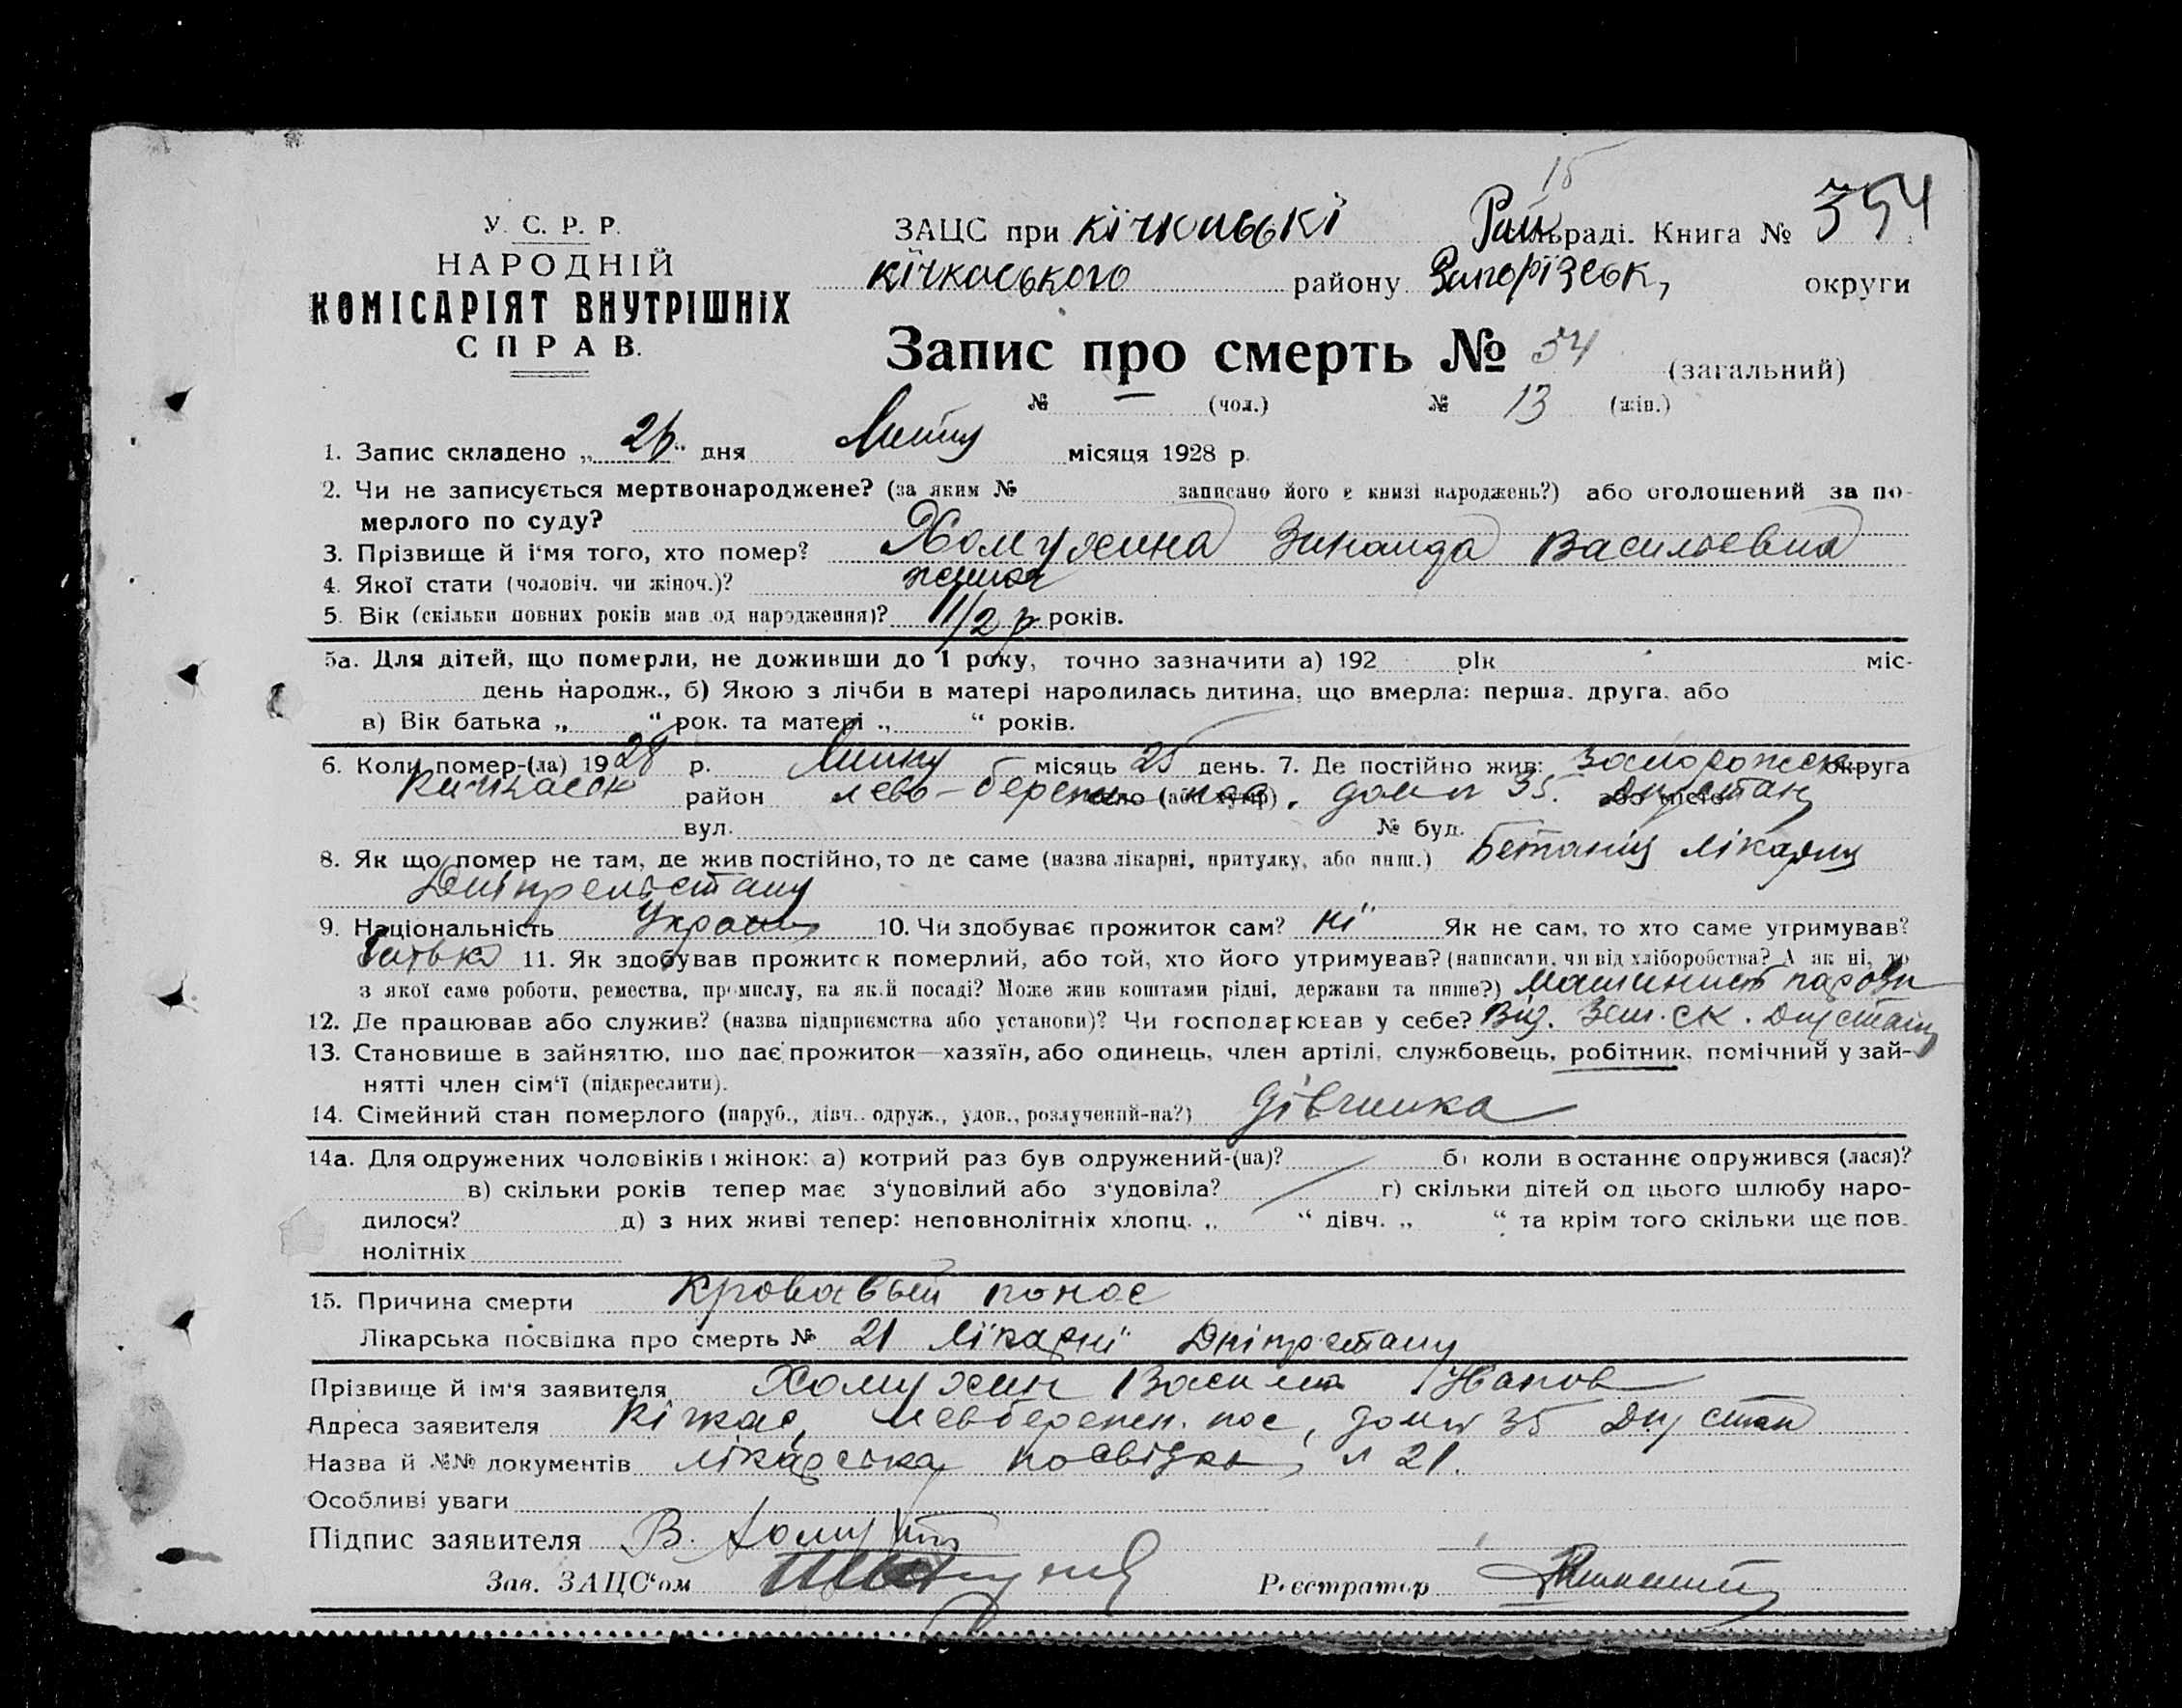 15
У. С. Р. Р.
НАРОДНІЙ
КОМІСАРІЯТ ВНУТРІШНІХ
СПРАВ.
ЗАЦС при Кічкаській Рай льраді. Книга № 354
Кічкаського району Запорізськ, округи
Запис про смерть № 54 (загальний)
№ — (чол.) № 13 (жін.)
1. Запис складено „ 26 " дня місяця 1928 р.
2. Чи не записується мертвонароджене? (за яким № записано його в книзі народжень?) або оголошений за по-
мерлого по суду?
3. Прізвище й і'мя того, хто помер? Хомухина Зинаида Васильевна
4. Якої стати (чоловіч. чи жіноч.)?
5. Вік (скільки повних років мав од народження)? 1 1/2 р років.
5а. Для дітей, що померли, не доживши до 1 року, точно зазначити а) 192 рік міс-
день народж., б) Якою з лічби в матері народилась дитина, що вмерла: перша, друга, або
в) Вік батька „ " рок. та матері „ " років.
6. Коли помер-(ла) 1928 р. місяць 25 день. 7. Де постійно жив: Запорожск округа
Кичкаск район лево-бережн село (або хутір) пос. дом № 35. або місто
вул. № буд.
8. Як що помер не там, де жив постійно, то де саме (назва лікарні, притулку, або инш.) лікарня
Дніпрельстану
9. Національність Україн 10. Чи здобуває прожиток сам? ні Як не сам, то хто саме утримував?
батько 11. Як здобував прожиток померлий, або той, хто його утримував? (написати, чи від хліборобства? А як ні, то
з якої саме роботи, ремества, промислу, на якій посаді? Може жив коштами рідні, держави та инше?) машинист паров
12. Де працював або служив? (назва підприємства або установи)? Чи господарював у себе? Від. Зем. ск.
13. Становище в зайняттю, що дає прожиток—хазяїн, або одинець, член артілі, службовець, робітник, помічний у зай-
нятті член сім'ї (підкреслити).
14. Сімейний стан померлого (паруб., дівч., одруж., удов., розлучений-на?) дівчинка
14а. Для одружених чоловіків і жінок: а) котрий раз був одружений-(на)? б) коли востаннє одружився (лася)?
в) скільки років тепер має з'удовілий або з'удовіла? г) скільки дітей од цього шлюбу наро-
дилося? д) з них живі тепер: неповнолітніх хлопц. „ " дівч. „ " та крім того скільки ще пов-
нолітніх
15. Причина смерти Кровавый понос
Лікарська посвідка про смерть № 21 лікарні Дніпрстану
Прізвище й ім'я заявителя Хомухин Иванов
Адреса заявителя Кічкас, Левобережн. пос, дом № 35
Назва й №№ документів лікарська посвідка, № 21.
Особливі уваги
Підпис заявителя
Зав. ЗАЦС'ом Реєстратор